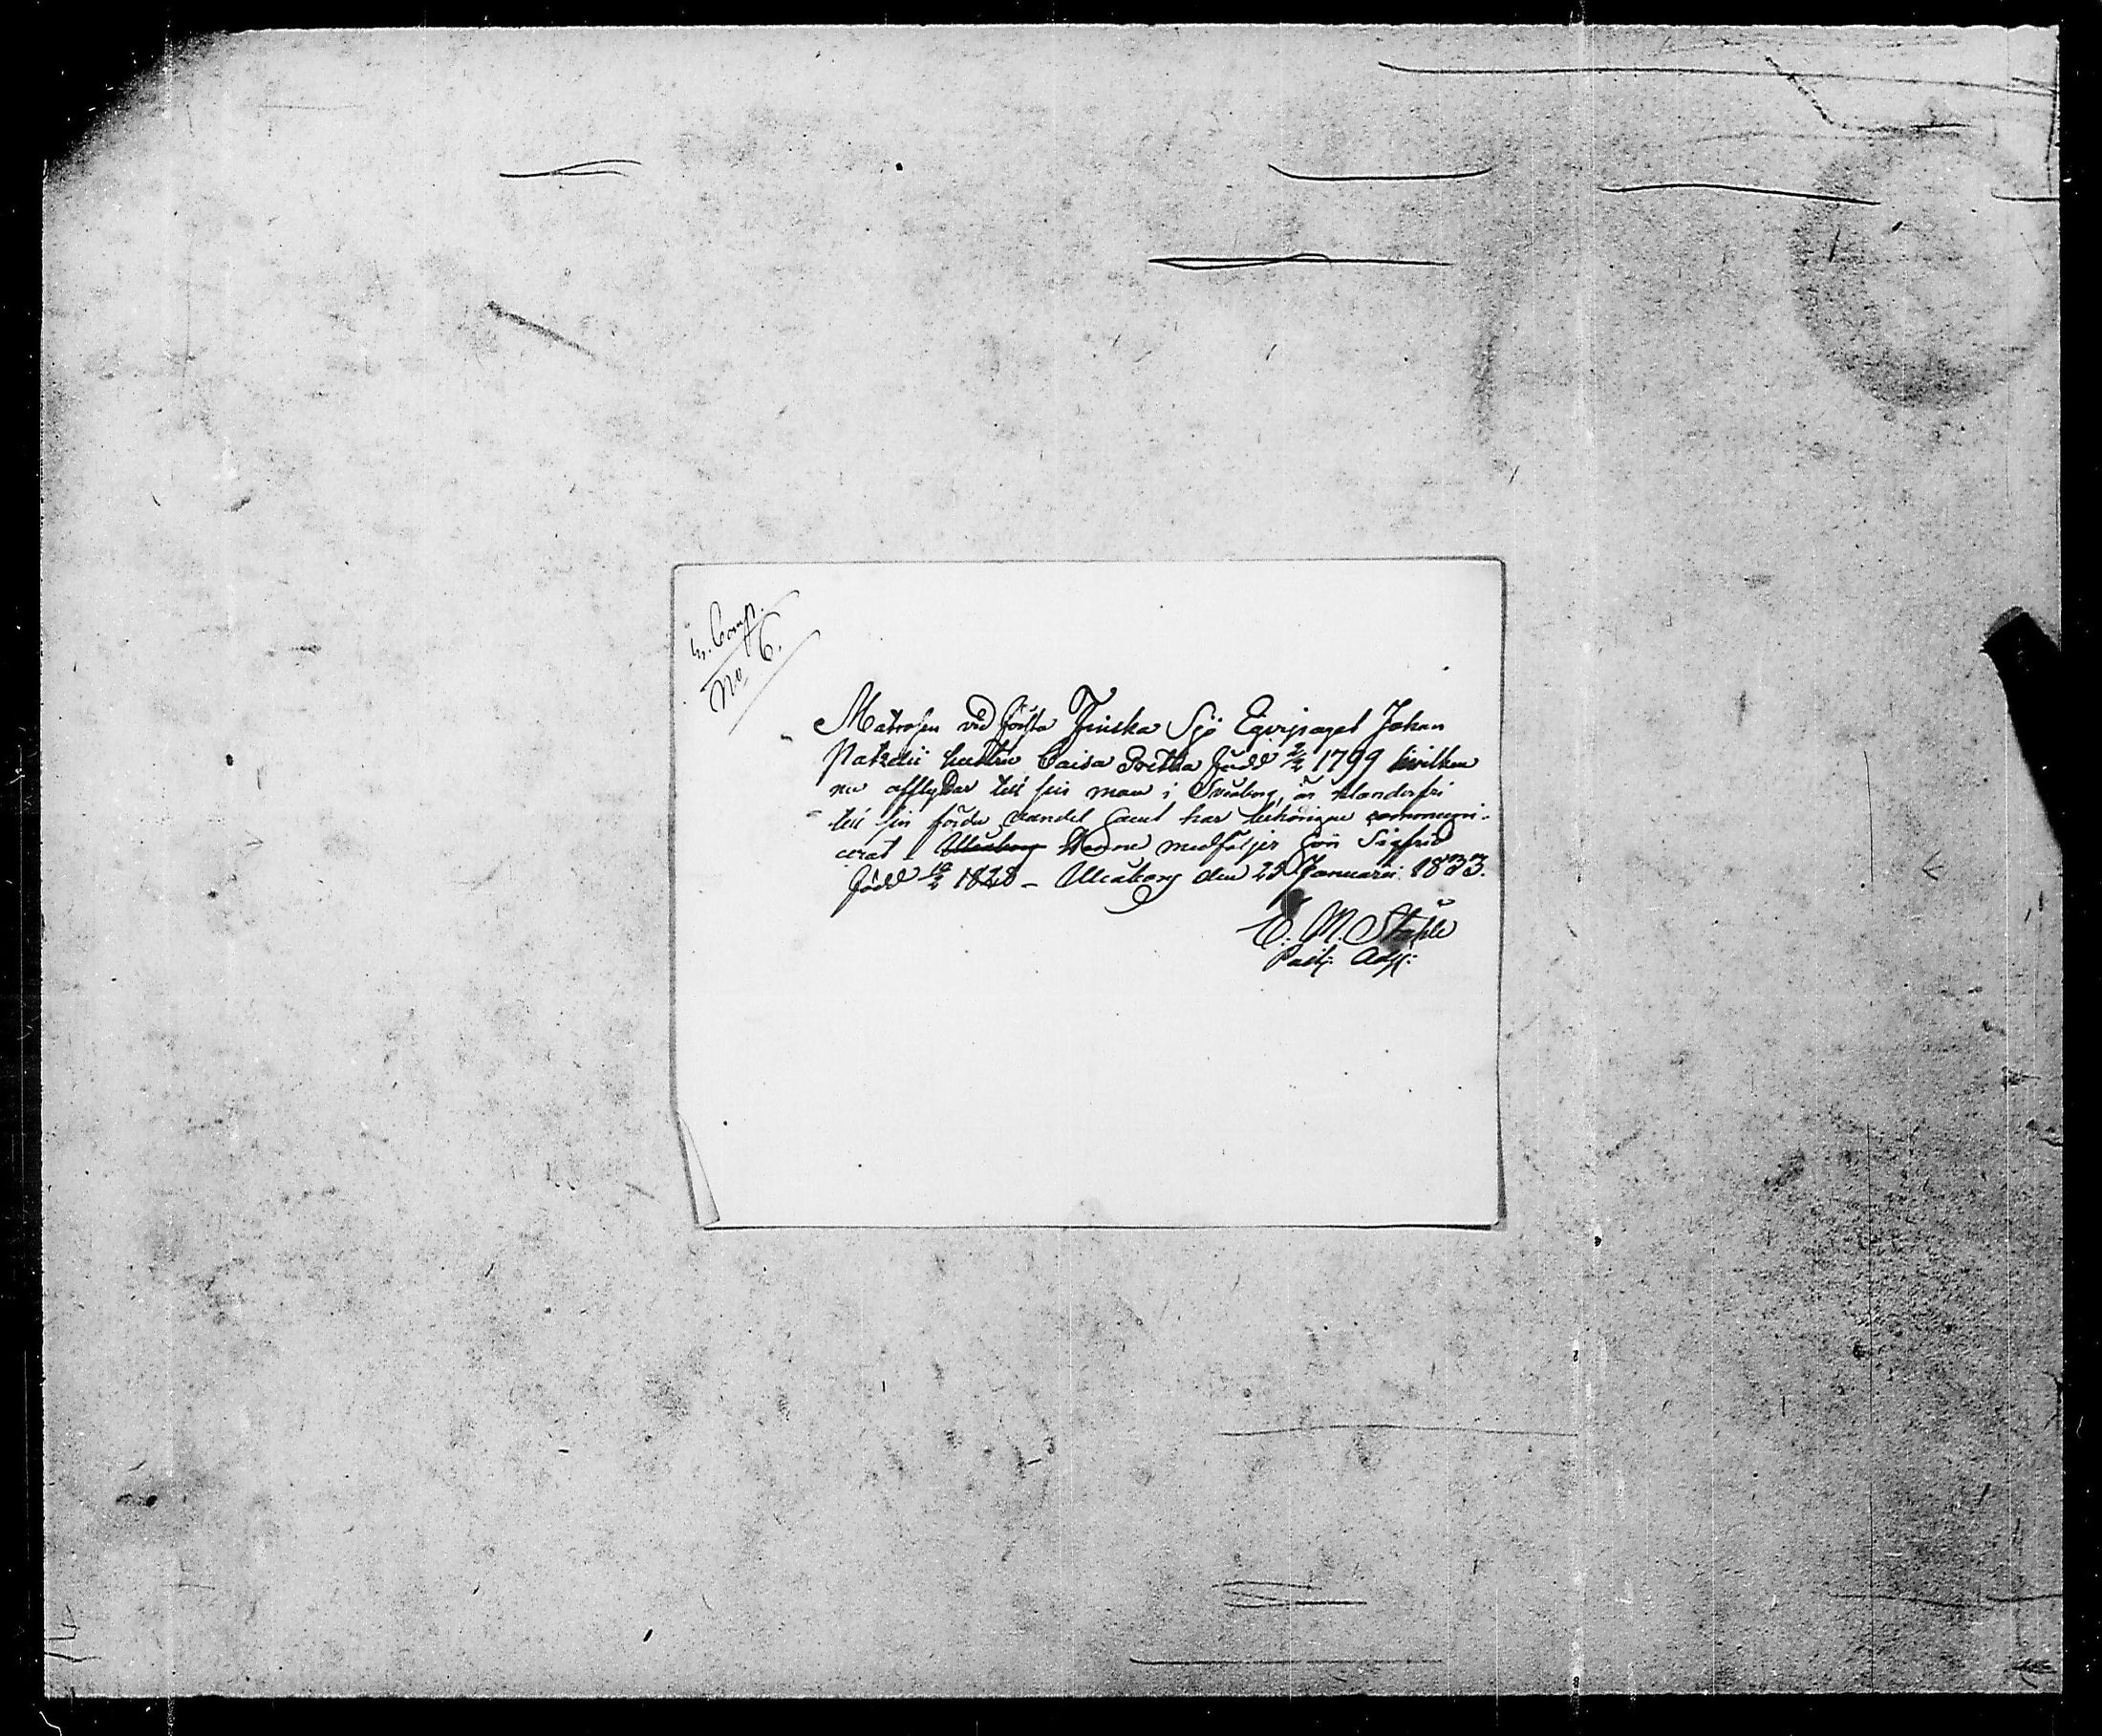 Comp.
No 6.
Matrosen vid första Finska Sjö Eqvipaget Johan
hustru Caisa Greta född 2/2 1799 hvilken
nu afflyttar till sin man i Sveaborg, är klanderfri
till sin förda vandel samt har behörigen communi-
cerat – Uleåborg Henne medföljer son Sigfrid
född 10/2 1828 – Uleåborg den 25 Januarii 1833.
E. M. Ståhle
Past: Adj: